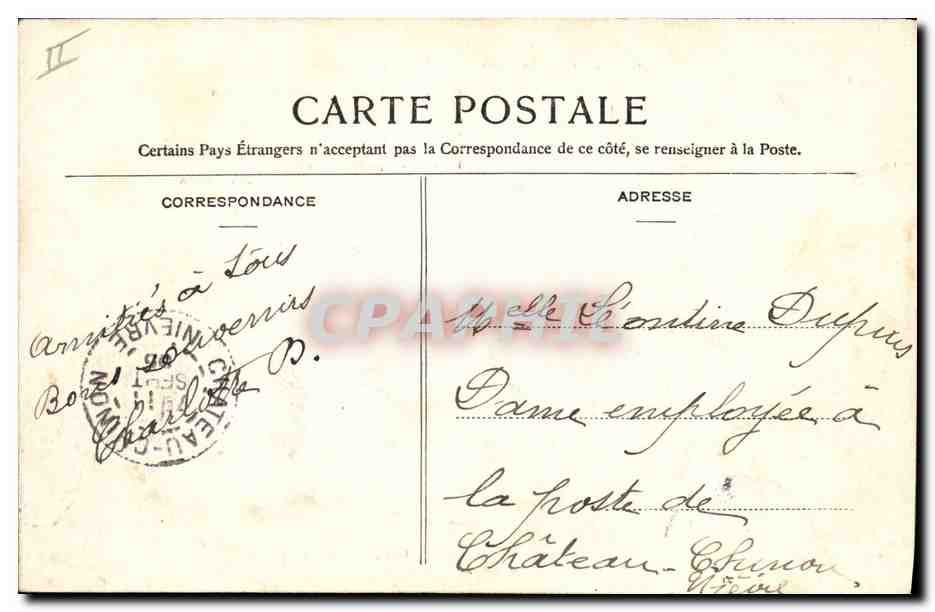 II
CARTE POSTALE
Certains Pays Étrangers n'acceptant pas la Correspondance de ce côté, se renseigner à la Poste.
CORRESPONDANCE
Amitiés à tous
Bons souvenirs
Charlotte D.
CHATEAU-CHINON
NIEVRE
SEPT
ADRESSE
Melle Léontine Dupuis
Dame employée à
la poste de
Château-Chinon
Nièvre
CPAPHIL